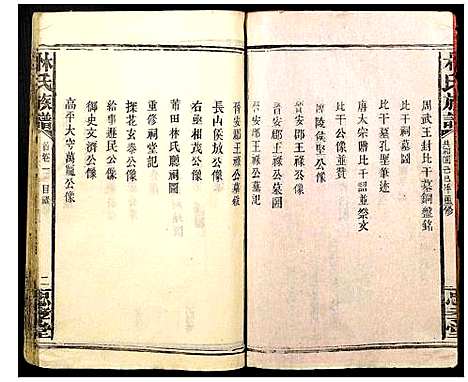 林氏族譜
民國己巳年重修
思孝堂
周武王封比干墓銅盤銘
比干祠墓圖
比干墓孔聖筆迹
唐太宗贈比干詔並祭文
比干公像並贊
晉安郡王祿公像
晉安郡王祿公墓圖
晉安郡王祿公墓記
晉安郡王祿公墓
長山侯坡公像
右丞相茂公像
莆田林氏聽祠圖
重修祠堂記
探花玄泰公像
給事遜民公像
御史文濟公像
高平太守萬寵公像
林氏族譜
首卷一
目錄
二
思孝堂